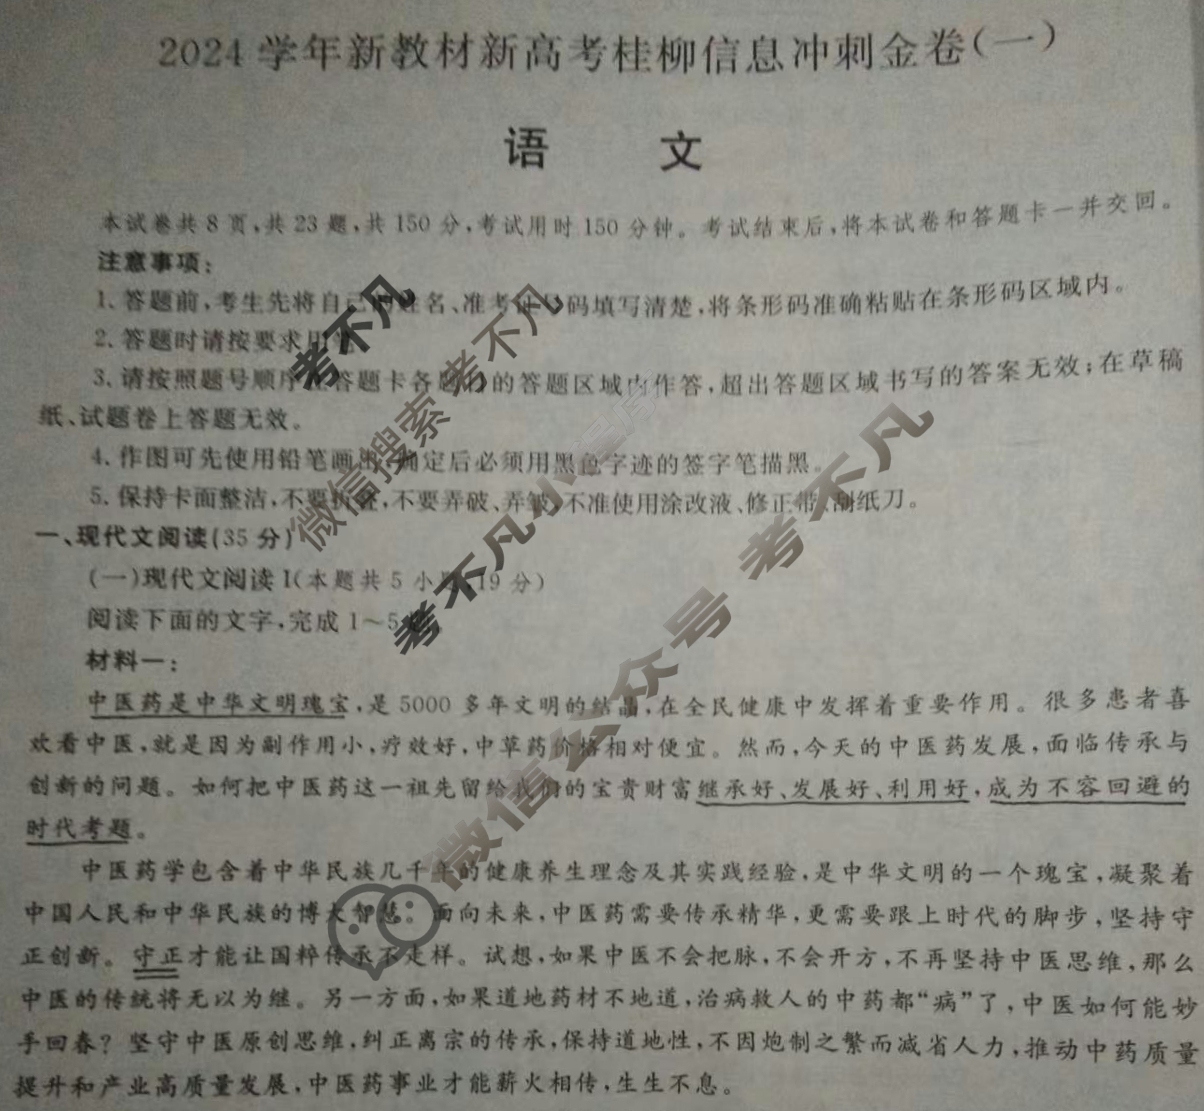 2024学年新教材新高考桂柳信息冲刺金卷(一)
语 文
本试卷共8页,共23题,共150分,考试用时150分钟。考试结束后,将本试卷和答题卡一并交回。
注意事项:
1.答题前,考生先将自己的姓名、准考证号码填写清楚,将条形码准确粘贴在条形码区域内。
2.答题时请按要求用笔
3.请按照题号顺序在答题卡各题目的答题区域内作答,超出答题区域书写的答案无效;在草稿
纸、试题卷上答题无效。
4.作图可先使用铅笔画出,确定后必须用黑色字迹的签字笔描黑。
5.保持卡面整洁,不要折叠,不要弄破、弄皱,不准使用涂改液、修正带、刮纸刀。
一、现代文阅读(35分)
(一)现代文阅读I(本题共5小题,19分)
阅读下面的文字,完成1~5题。
材料一:
中医药是中华文明瑰宝,是5000多年文明的结晶,在全民健康中发挥着重要作用。很多患者喜
欢看中医,就是因为副作用小,疗效好,中草药价格相对便宜。然而,今天的中医药发展,面临传承与
创新的问题。如何把中医药这一祖先留给我们的宝贵财富继承好、发展好、利用好,成为不容回避的
时代考题。
中医药学包含着中华民族几千年的健康养生理念及其实践经验,是中华文明的一个瑰宝,凝聚着
中国人民和中华民族的博大智慧。面向未来,中医药需要传承精华,更需要跟上时代的脚步,坚持守
正创新。守正才能让国粹传承不走样。试想,如果中医不会把脉,不会开方,不再坚持中医思维,那么
中医的传统将无以为继。另一方面,如果道地药材不地道,治病救人的中药都“病”了,中医如何能妙
手回春?坚守中医原创思维,纠正离宗的传承,保持道地性,不因炮制之繁而减省人力,推动中药质量
提升和产业高质量发展,中医药事业才能薪火相传,生生不息。
考不凡
微信搜索考不凡
考不凡小程序
微信公众号 考不凡